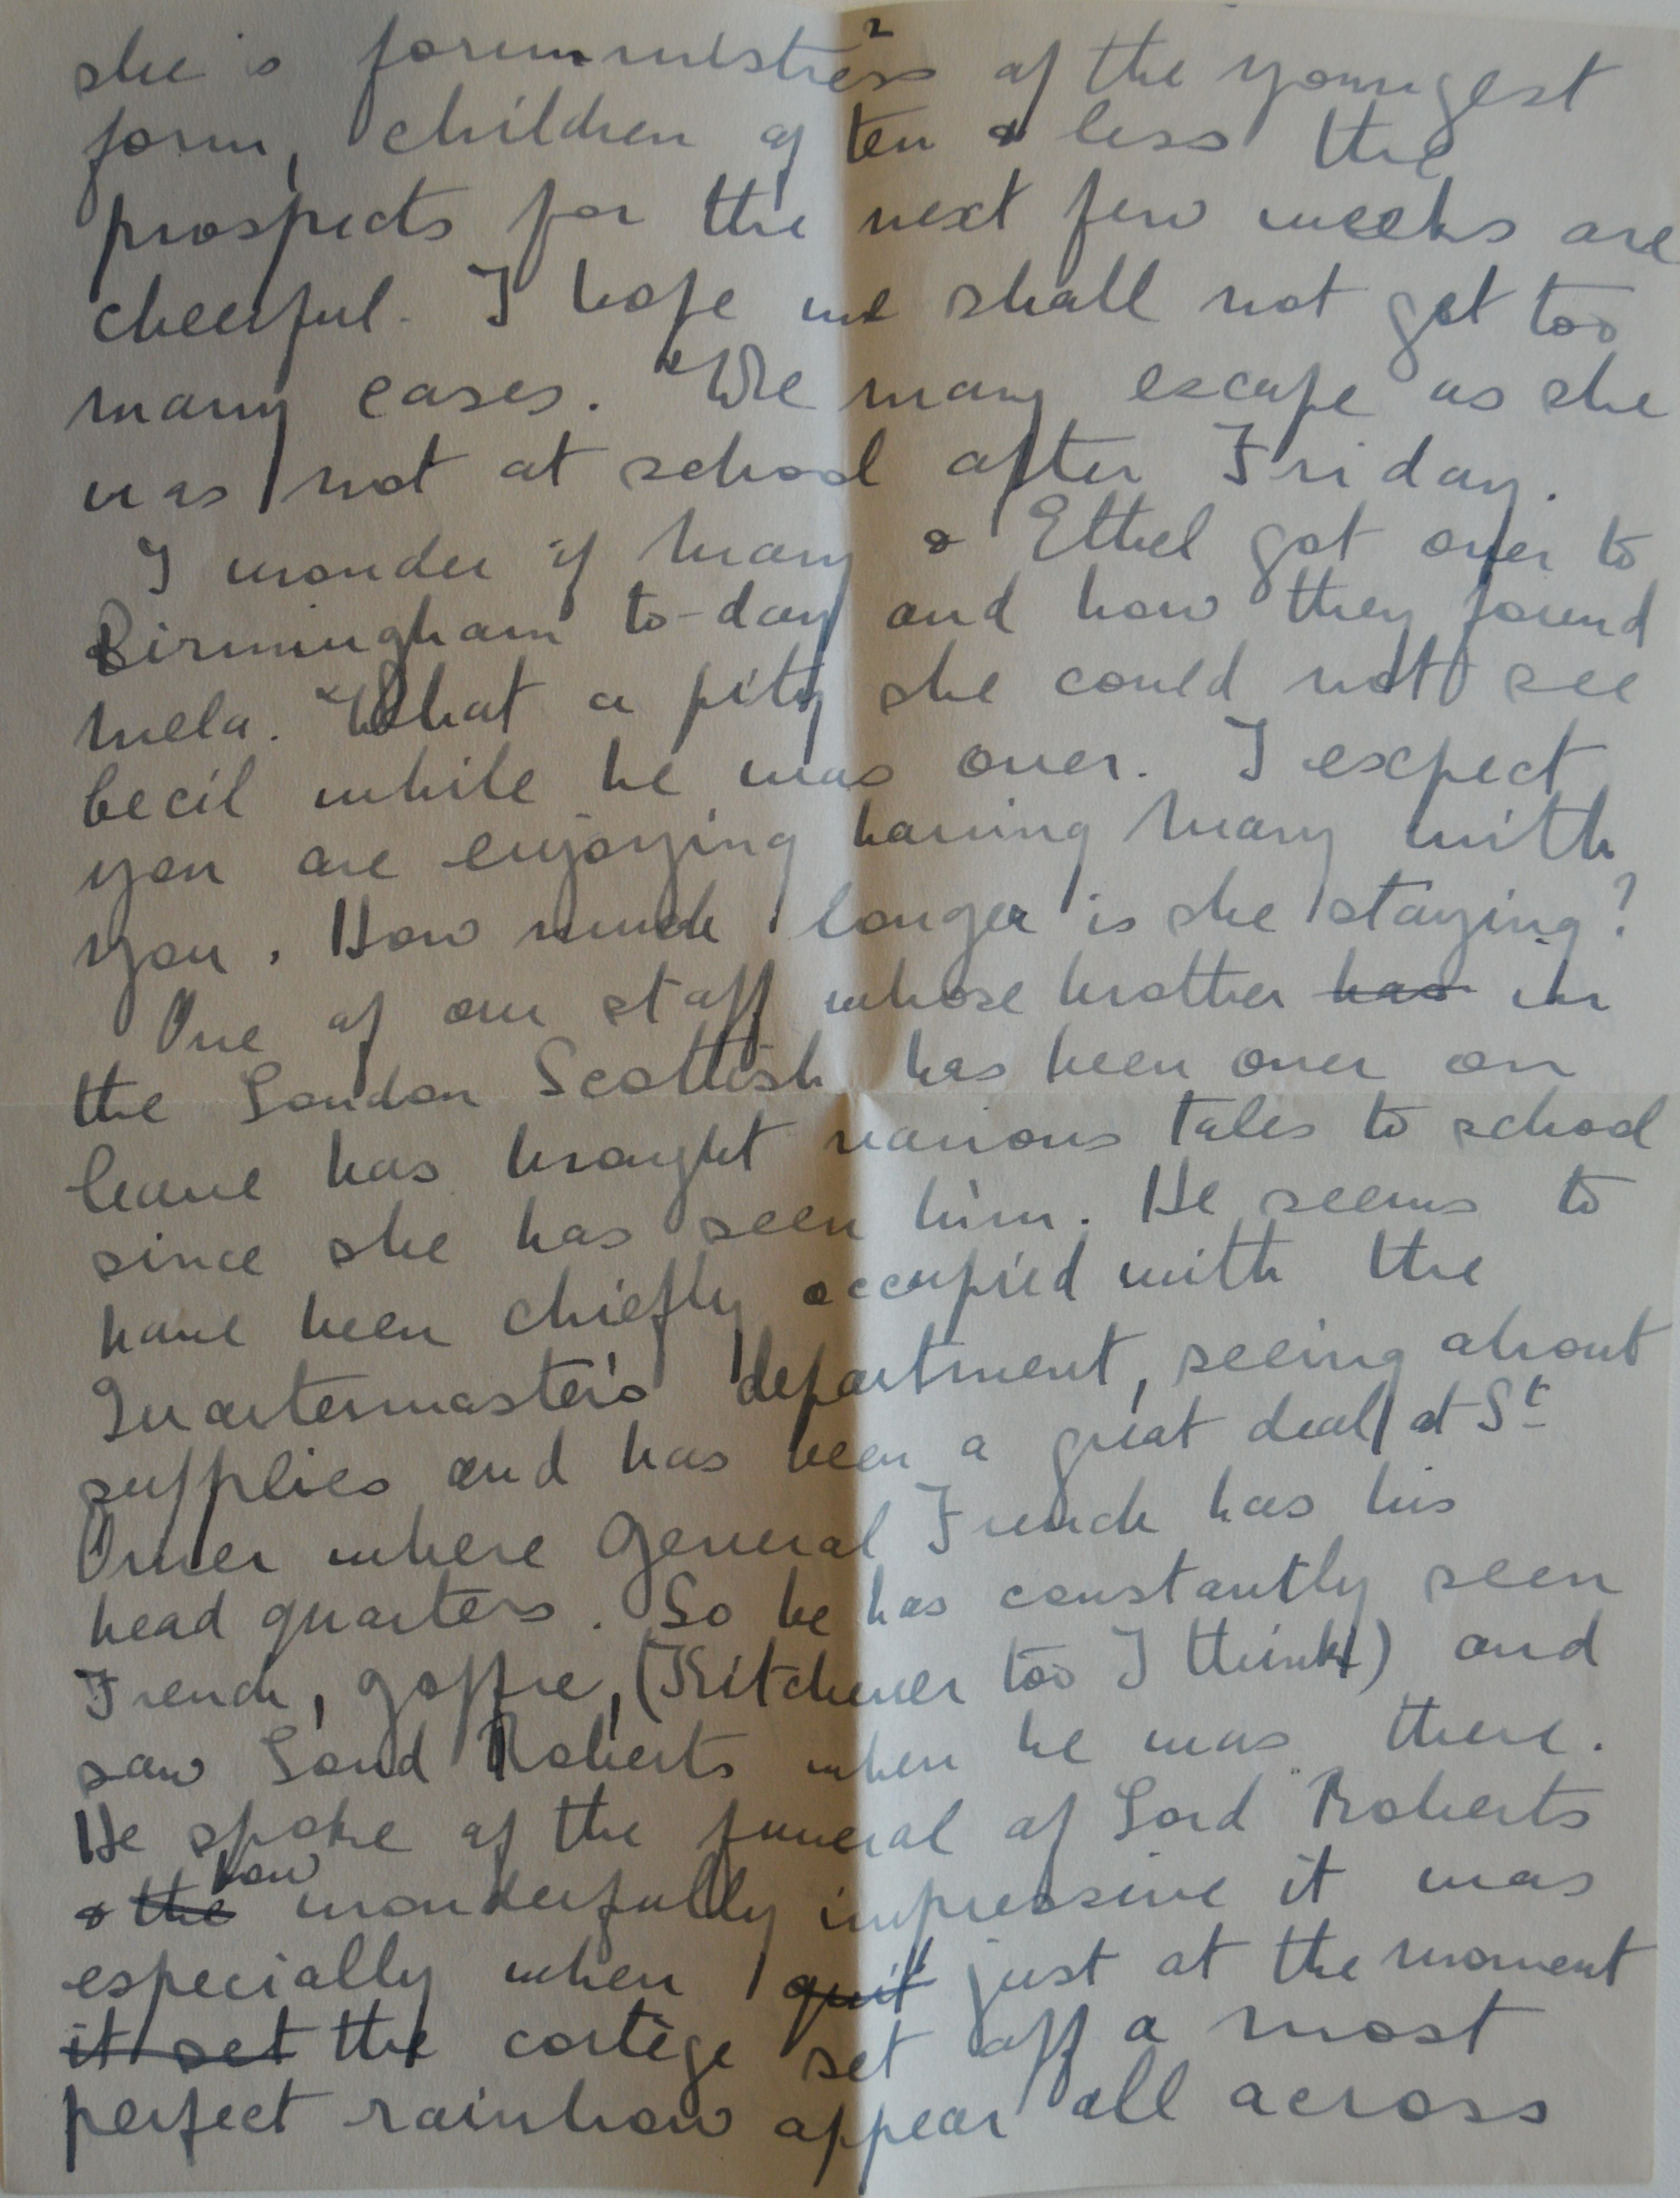 2
she is form mistress of the youngest
form, children of ten & less the
prospects for the next few weeks are
cheerful. I hope we shall not get too
many cases. We may escape as she
was not at school after Friday.
I wonder if Mary & Ethel got over to
Birmingham to-day and how they found
Mela. What a pity she could not see
Cecil while he was over. I expect
you are enjoying having Mary with
you. How much longer is she staying?
One of our staff whose brother has in
the London Scottish has been over on
leave has brought various tales to school
since she has seen him. He seems to
have been chiefly occupied with the
Quartermasters department, seeing about
supplies and has been a great deal at St
Omer where General French has his
head quarters. So he has constantly seen
French, Joffre, (Kitchener too I think) and
saw Lord Roberts when he was there.
He spoke of the funeral of Lord Roberts
& the how wonderfully impressive it was
especially when quit just at the moment
it set the cortège set off a most
perfect rainbow appear all across